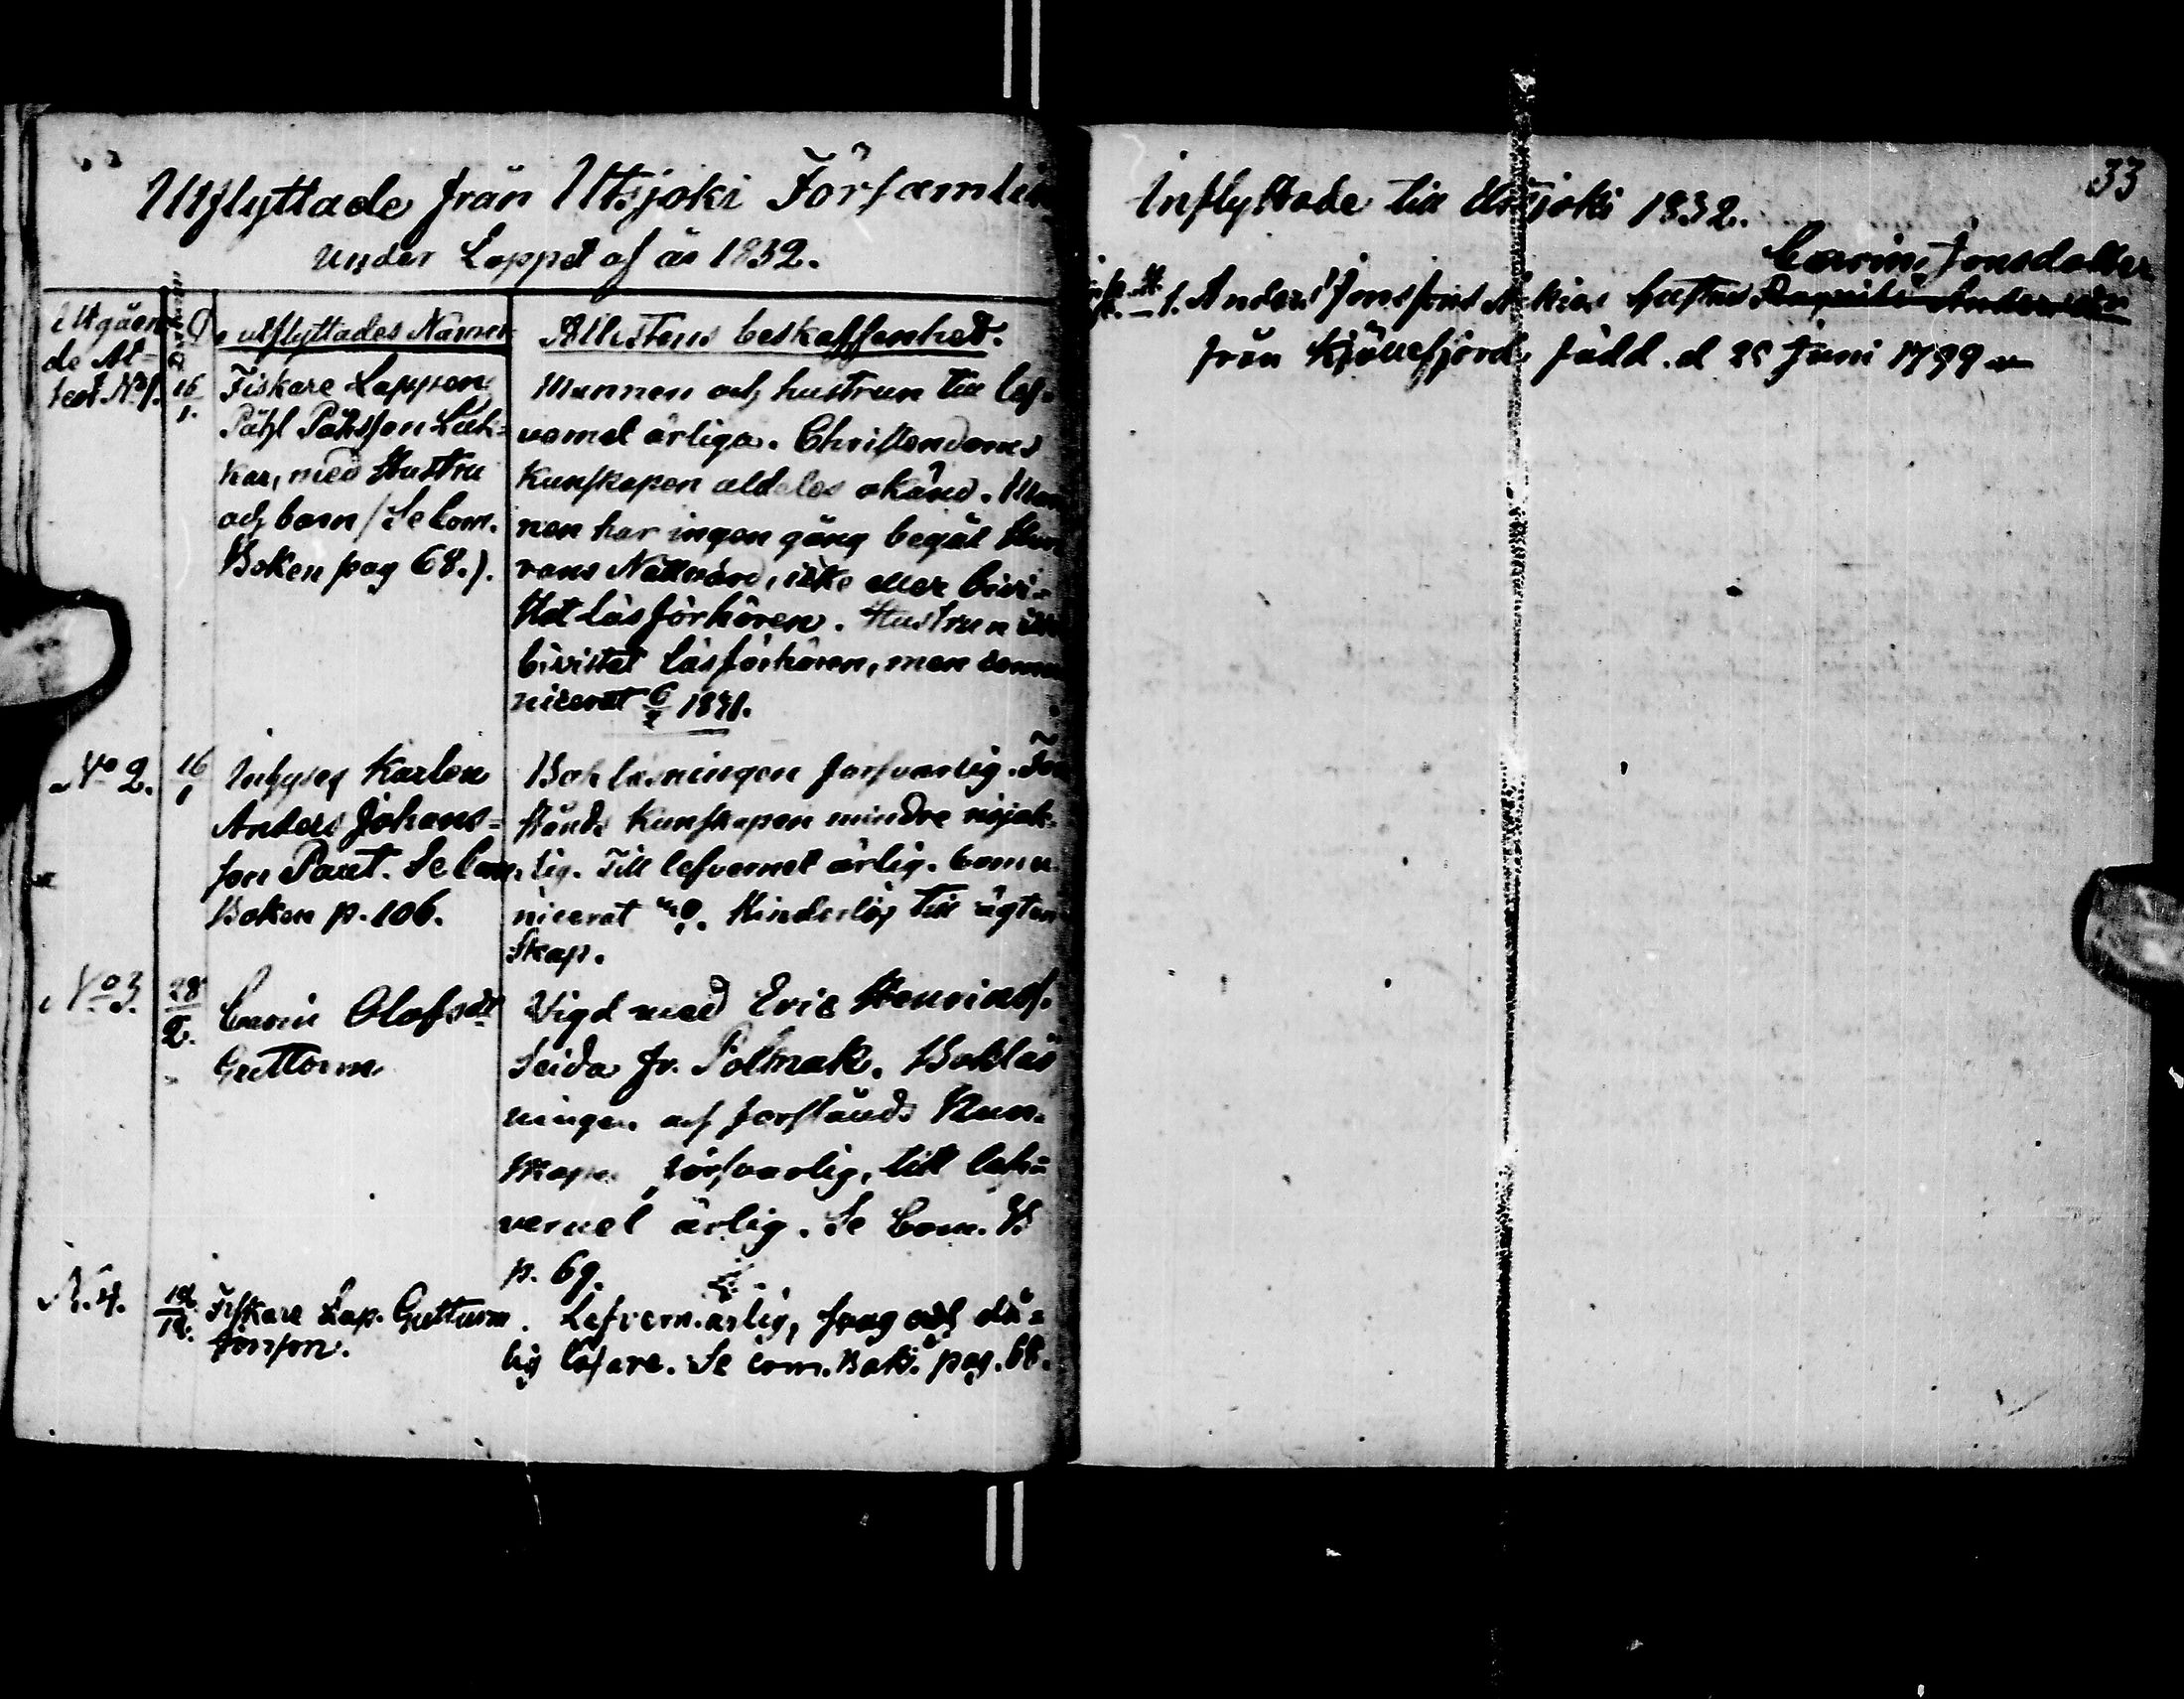 Utflyttade från Utsjoki Församlin
under Loppet af år 1832.
Utgåen-
de At-
test No 1.
Datum
De utflyttades Namn
Attestens beskaffenhet.
16/1.
Fiskare Lappen
Påhl Påhlsson Luk-
kar, med Hustru
och barn /Se Com.
Boken pag 68.).
Mannen och hustrun till lef-
vernet ärliga. Christendoms
kunskapen aldeles okänd. Man
nen har ingen gång begåt Her
rans Nattvard, icke eller bivi-
stat Läsförhören. Hustrun
bivistat läsförhören, men commu
nicerat 1831.
No 2.
16/1
Inhyses Karlen
Anders Johans-
son Paut. Se Com.
Boken p. 106.
Bokläsningen försvarlig. För
stånds Kunskapen mindre nöjak-
tig. Till lefvernet ärlig. Commu
nicerat. Hinderlös till ägten
skap.
No 3.
28/2.
Carin Olofsdr
Guttorm
Vigd med Eric Henrics.
Seida fr. Polmak. Bokläs
ningen och förstånds Kun-
skapen försvarlig, till lef-
vernet ärlig. Se Com. B
p. 69.
N. 4.
Fiskare Lap. Guttorm
Jonsson.
Lefvern. ärlig, svag och då-
lig läsare. Se com. Bok. pag. 68.
33
Inflyttade till Utsjoki 1832.
Carin Jonsdotter
1. Anders Jonssons hustru
från Kjöllefjord, född. d 25 Juni 1799